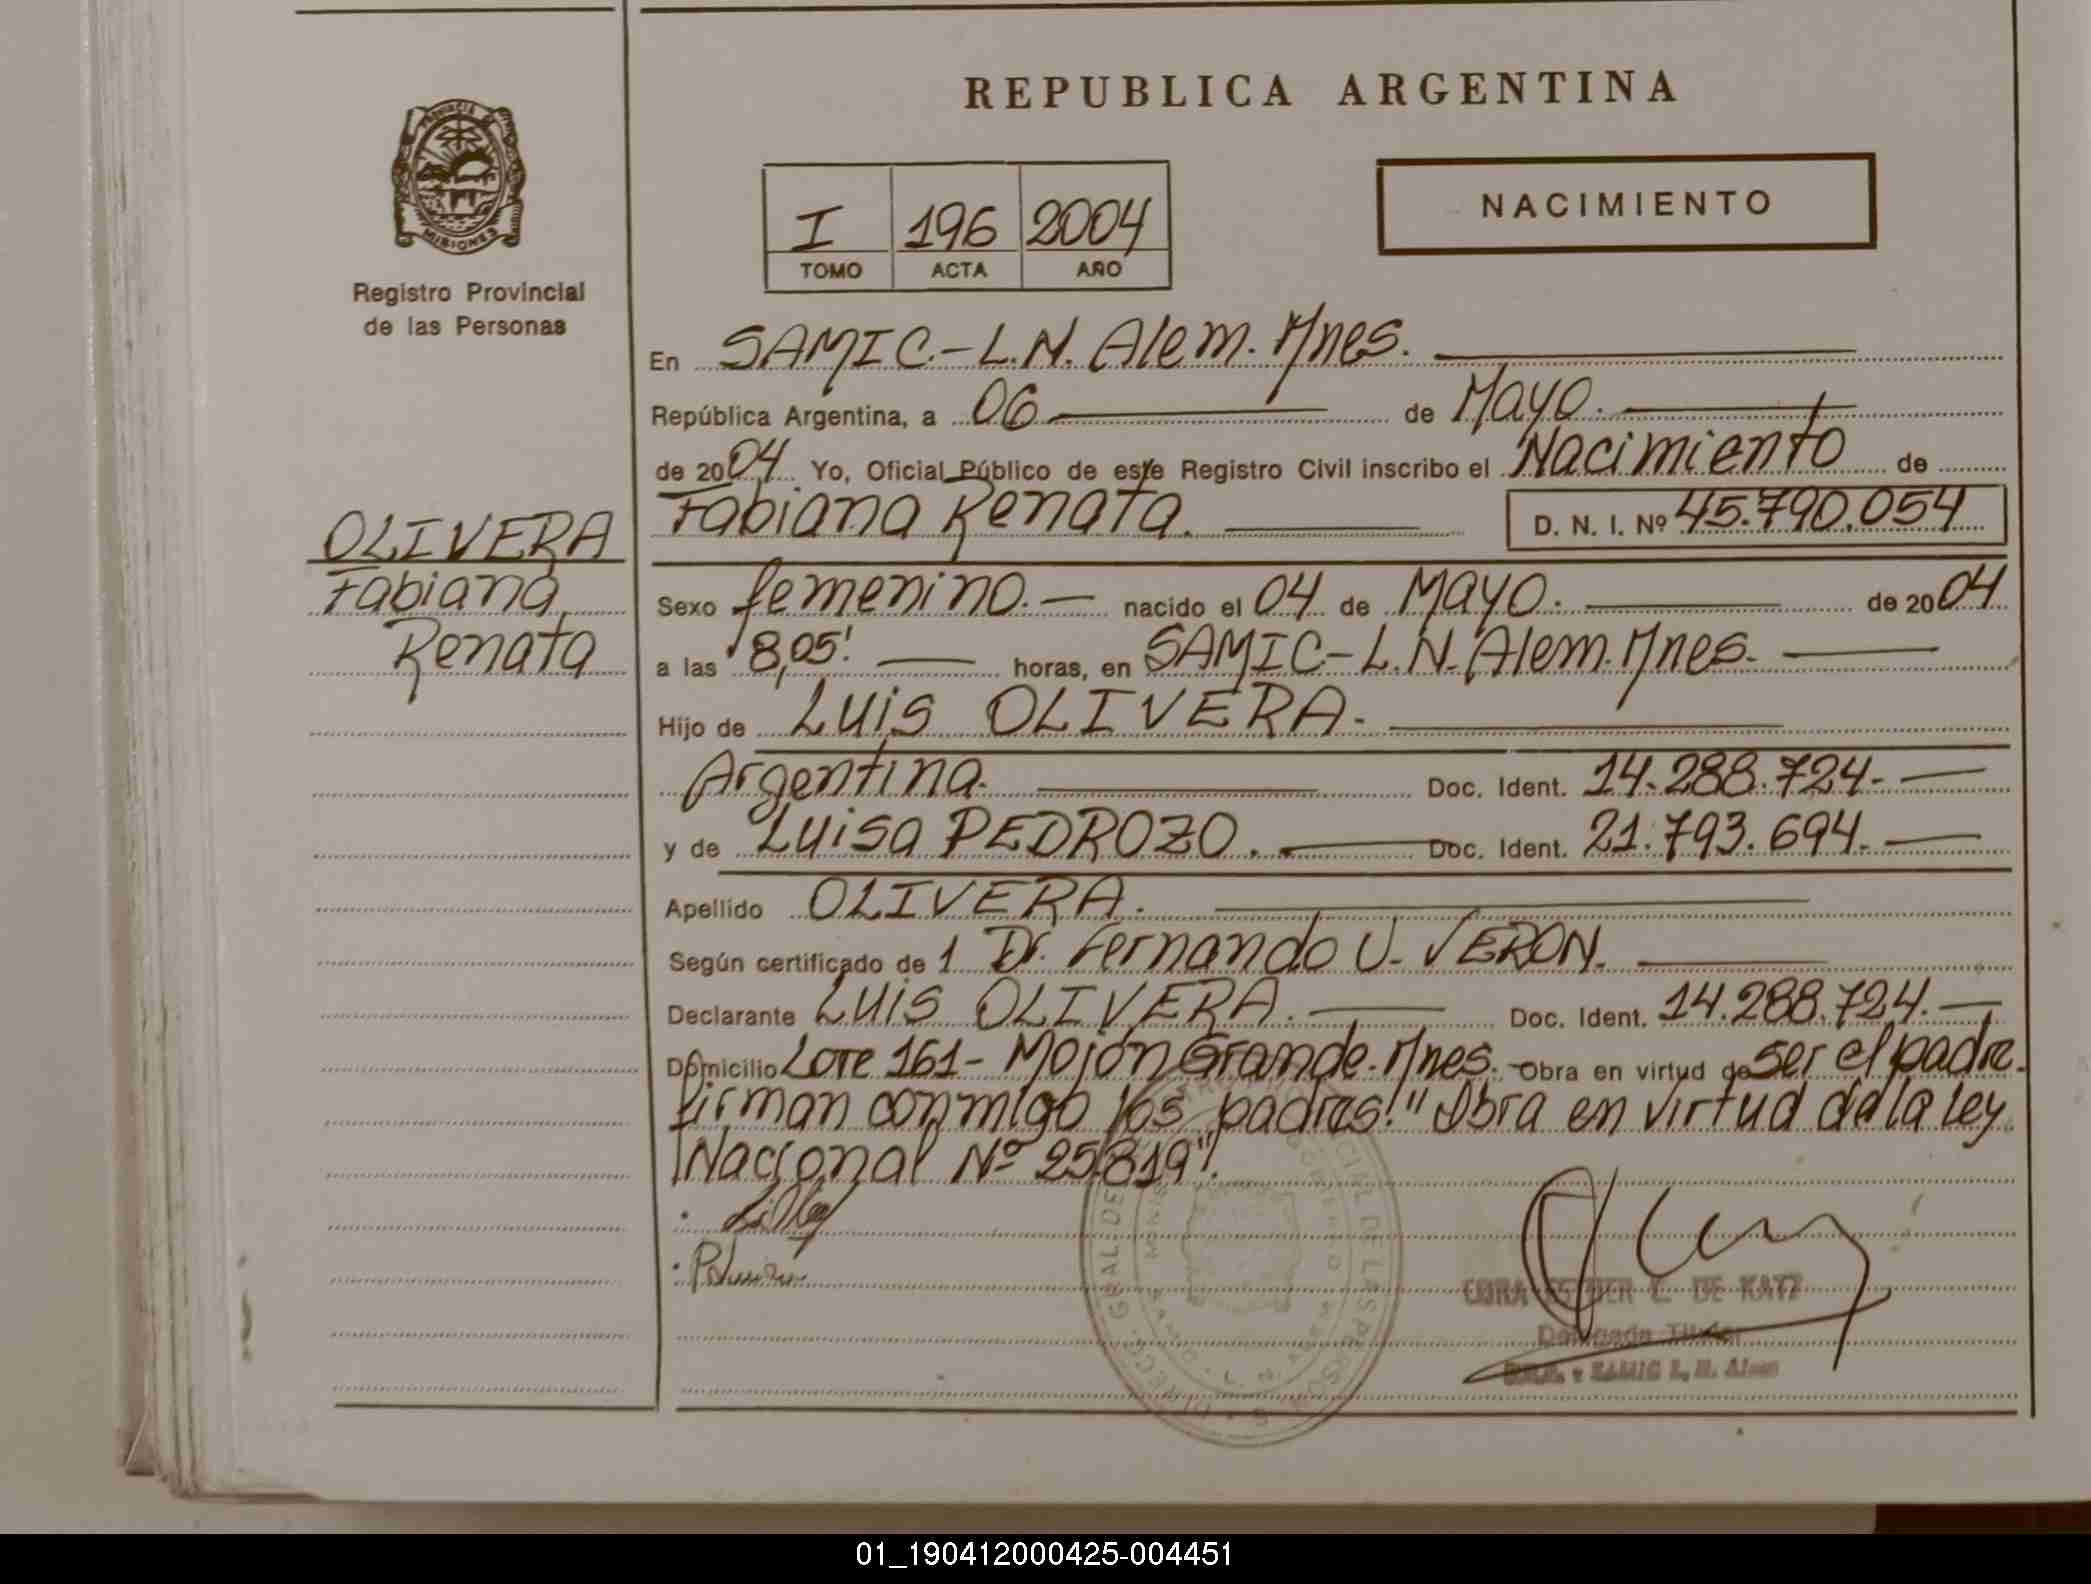 REPUBLICA ARGENTINA
PROVINCIA DE
MISIONES
Registro Provincial
de las Personas
I 196 2004
TOMO ACTA AÑO
NACIMIENTO
En SAMIC.-L.N. Alem. Mnes.
República Argentina, a 06 de Mayo.
de 2004 Yo, Oficial Público de este Registro Civil inscribo el Nacimiento de
Fabiana Renata. D. N. I. Nº 45.790.054
OLIVERA
Fabiana
Renata
Sexo femenino.- nacido el 04 de Mayo. de 2004
a las 8,05' horas, en SAMIC-L.N. Alem. Mnes.
Hijo de Luis OLIVERA.
Argentina. Doc. Ident. 14.288.724.-
y de Luisa PEDROZO. Doc. Ident. 21.793.694.-
Apellido OLIVERA.
Según certificado de 1 Dr. Fernando U. VERON.
Declarante Luis OLIVERA. Doc. Ident. 14.288.724.-
Domicilio Lote 161- Mojón Grande. Mnes. Obra en virtud de ser el padre.
firman conmigo los padres." Obra en virtud de la Ley
Nacional Nº 25.819".
DE KATZ
Delegada Titular
SAMIC L. N. Alem
01_190412000425-004451